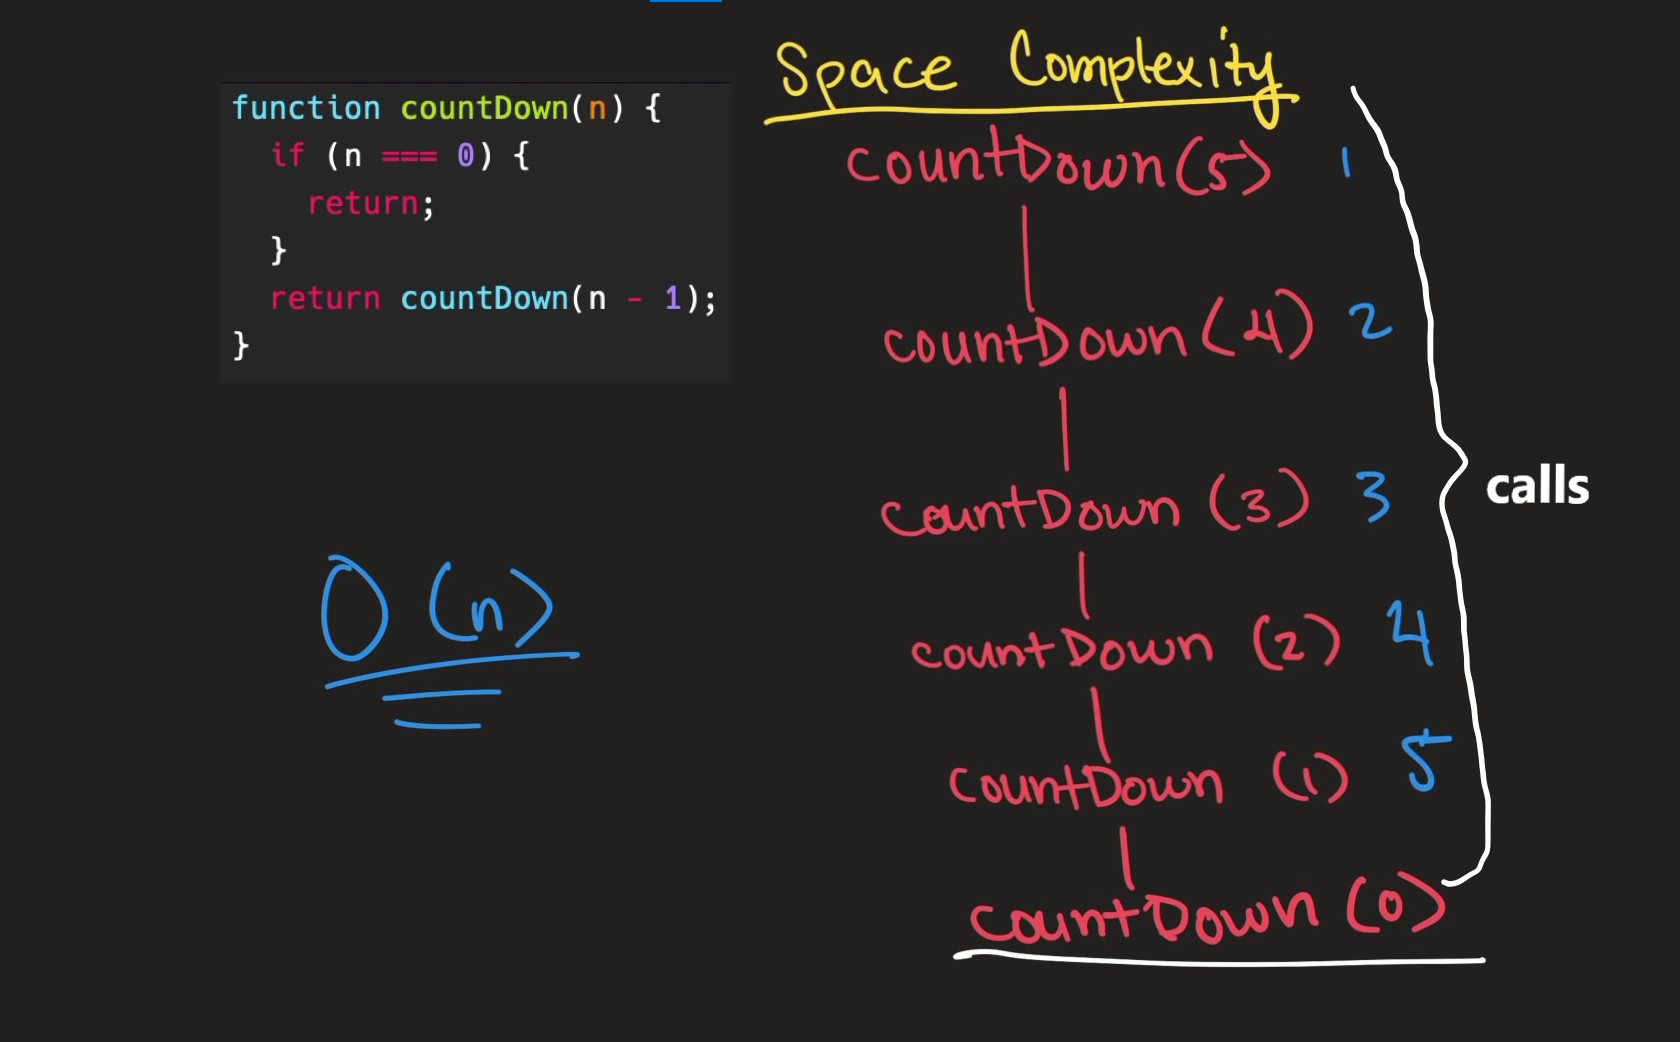 function countDown(n) {
if (n === 0) {
return;
}
return countDown(n - 1);
}
O (n)
Space Complexity
countDown(5) 1
countDown (4) 2
countDown (3) 3
countDown (2) 4
countDown (1) 5
countDown (0)
calls